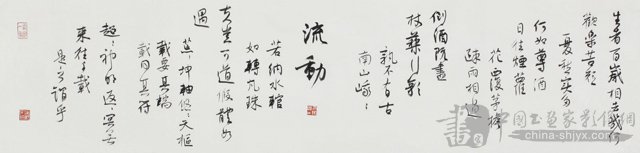 生者百歲相去幾何
歡樂苦短
憂愁實多
何如尊酒
日往煙蘿
花覆茅檐
疎雨相過
倒酒既盡
杖藜行歌
孰不有古
南山峨〻
流動
若納水輨
如轉丸珠
夫豈可道假體如
遇
荒〻坤軸悠〻天樞
載要其端
載聞其符
超〻神明返〻冥無
來往千載
是之謂乎
中国书画家影像网
china-shjyx.com